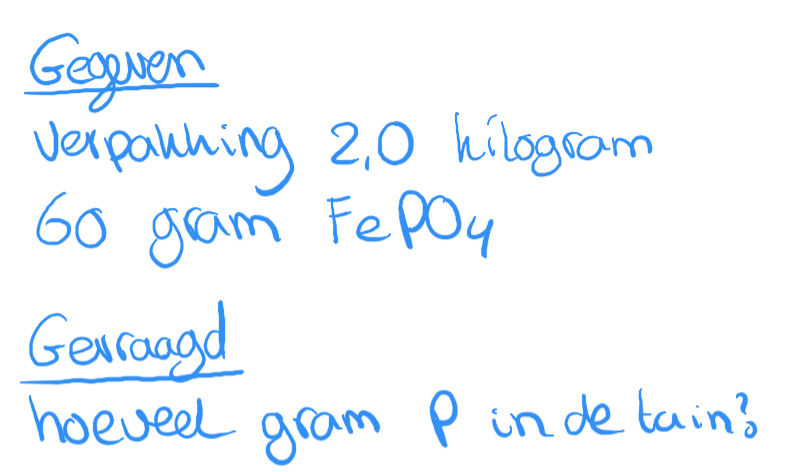 Gegeven
verpakking 2,0 kilogram
60 gram FePO4
Gevraagd
hoeveel gram P in de tuin?